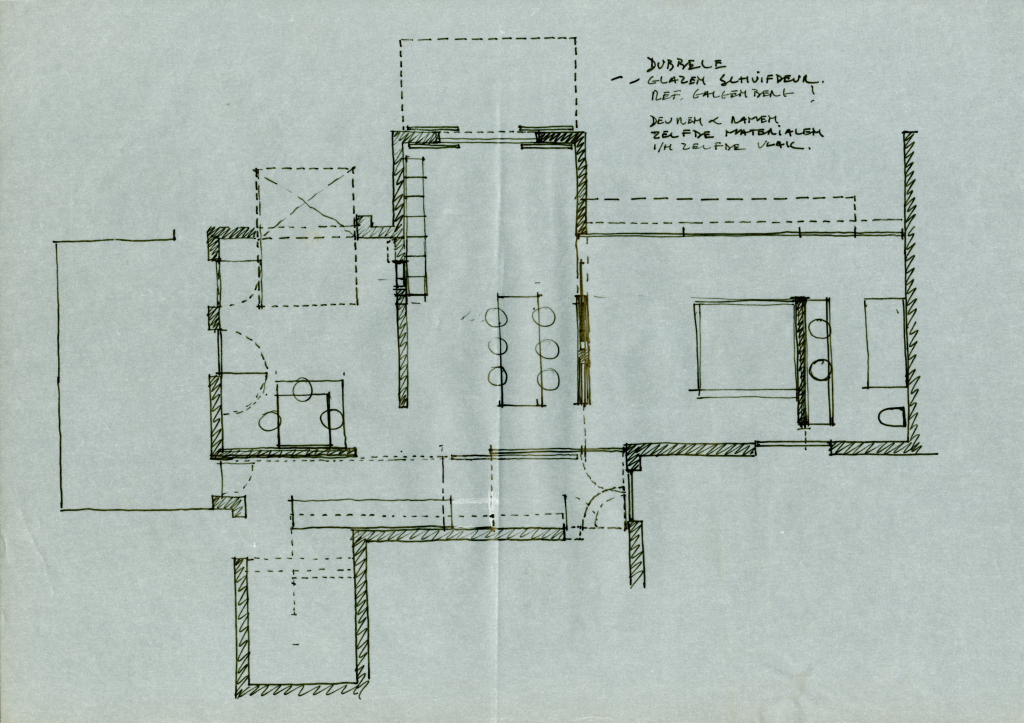 DUBBELE
GLAZEN SCHUIFDEUR.
REF. GALGENBERG !
DEUREN & RAMEN
ZELFDE MATERIALEN
I/H ZELFDE VLAK.